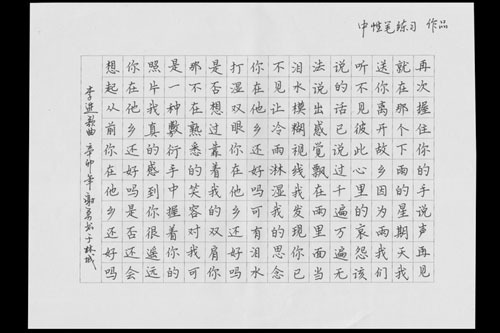 中性笔练习 作品
再次握住你的手说声再见
就在那个下雨的星期天我
送你离开故乡因为雨我们
听不见彼此心里的哀怨该
说的话已说过千遍万遍无
法说出感觉飘在雨里面当
泪水模糊视线我发现你已
不见让冷雨淋湿我的思念
你在他乡还好吗可有泪水
打湿双眼你在他乡还好吗
是否想过靠着我的双肩你
那不在熟悉的笑容对我可
是一种敷衍手中握着你的
照片我真的感到你很遥远
你在他乡还好吗是否还会
想起从前你在他乡还好吗
李进歌曲 辛卯年 于林城